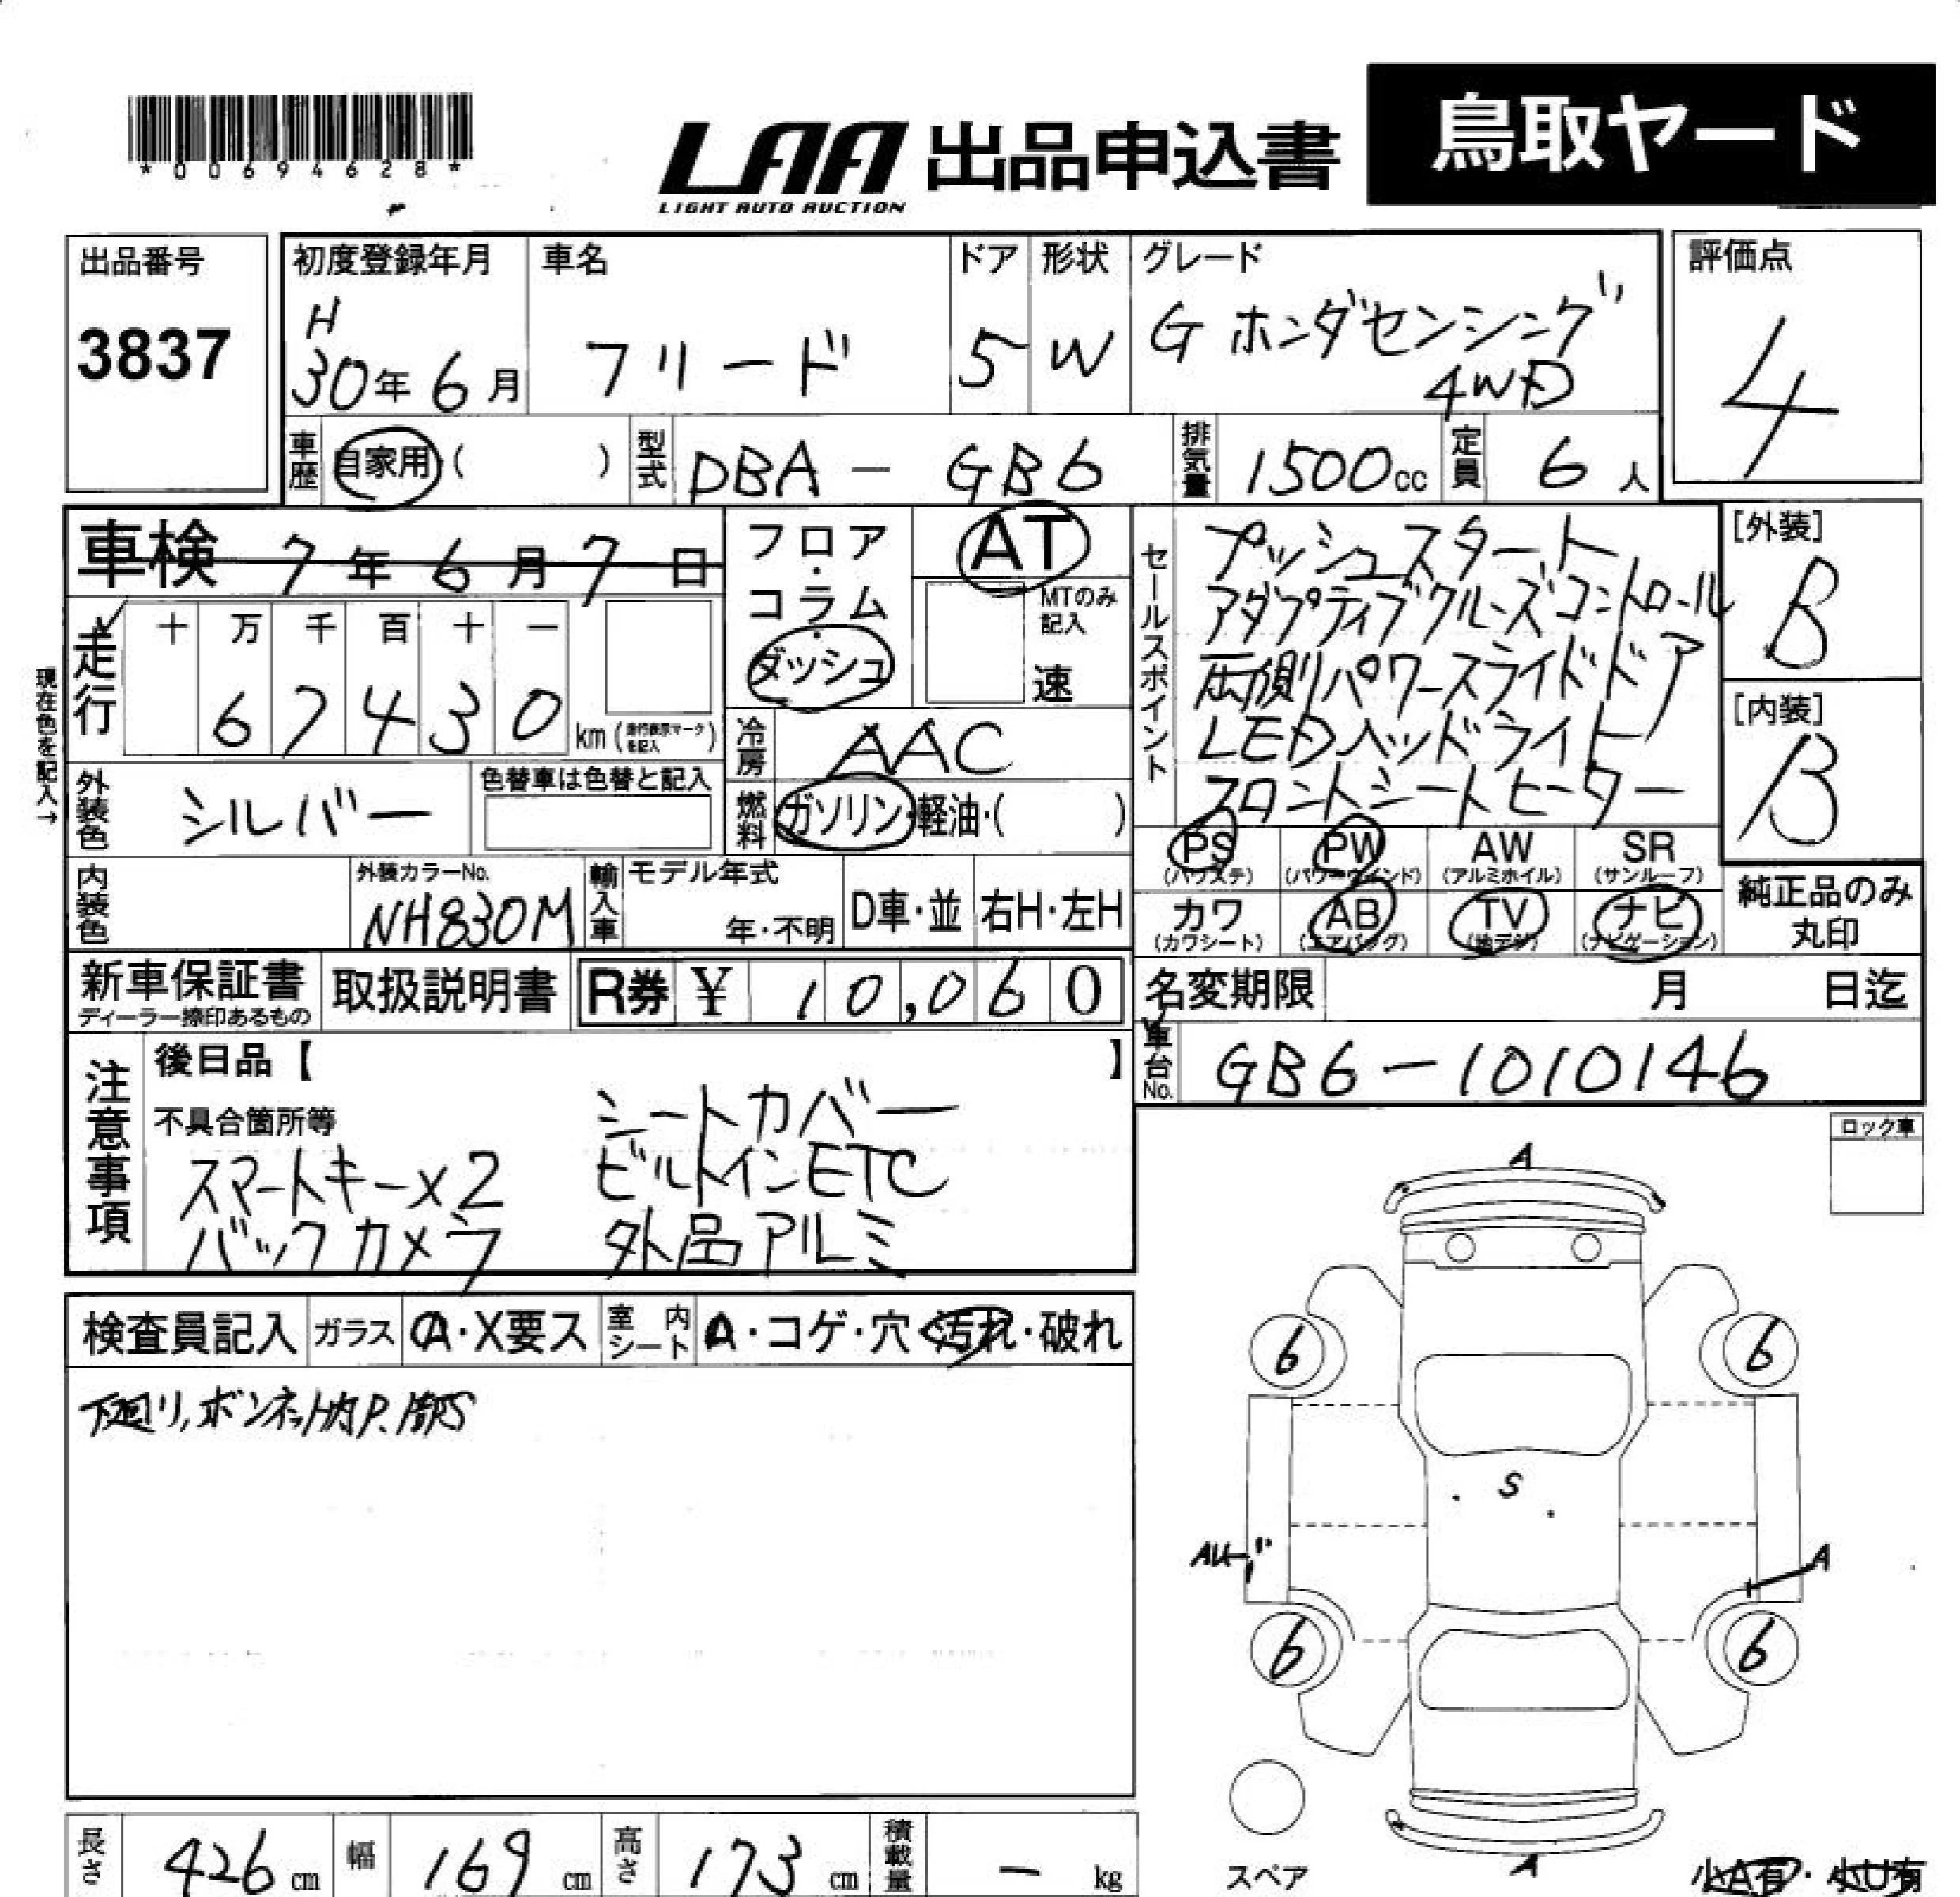 *00694628*
LAA 出品申込書 鳥取ヤード
LIGHT AUTO AUCTION
出品番号 初度登録年月 車名 ドア 形状 グレード 評価点
3837 H 30年6月 フリード 5 W G ホンダセンシング 4WD 4
車歴 自家用・( ) 型式 DBA - GB6 排気量 1500cc 定員 6人
車検 7年6月7日 フロア・コラム・ダッシュ AT
MTのみ記入 速
走行 十 万 千 百 十 一
67430 km (走行表示マークを記入)
現在色を記入→
冷房 AAC
外装色 シルバー 色替車は色替と記入
燃料 ガソリン・軽油・( )
セールスポイント
プッシュスタート
アダプティブクルーズコントロール
両側パワースライドドア
LEDヘッドライト
フロントシートヒーター
[外装] B
[内装] B
PS (パワステ) PW (パワーウインド) AW (アルミホイル) SR (サンルーフ)
カワ (カワシート) AB (エアバッグ) TV (地デジ) ナビ (ナビゲーション)
純正品のみ丸印
内装色 外装カラーNo. NH830M 輸入車 モデル年式 年・不明 D車・並 右H・左H
新車保証書 ディーラー捺印あるもの 取扱説明書 R券 ¥ 10,060
名変期限 月 日迄
車台No. GB6-1010146
注意事項
後日品【 】
不具合箇所等 シートカバー
スマートキー×2 ビルトインETC
バックカメラ 外品アルミ
ロック車
検査員記入 ガラス A・X要ス 室内シート A・コゲ・穴・汚れ・破れ
下廻り,ボンネット内P.部S
A
6 6
S
A
6 6
A
スペア
小A有・小U有
長さ 426cm 幅 169cm 高さ 173cm 積載量 - kg